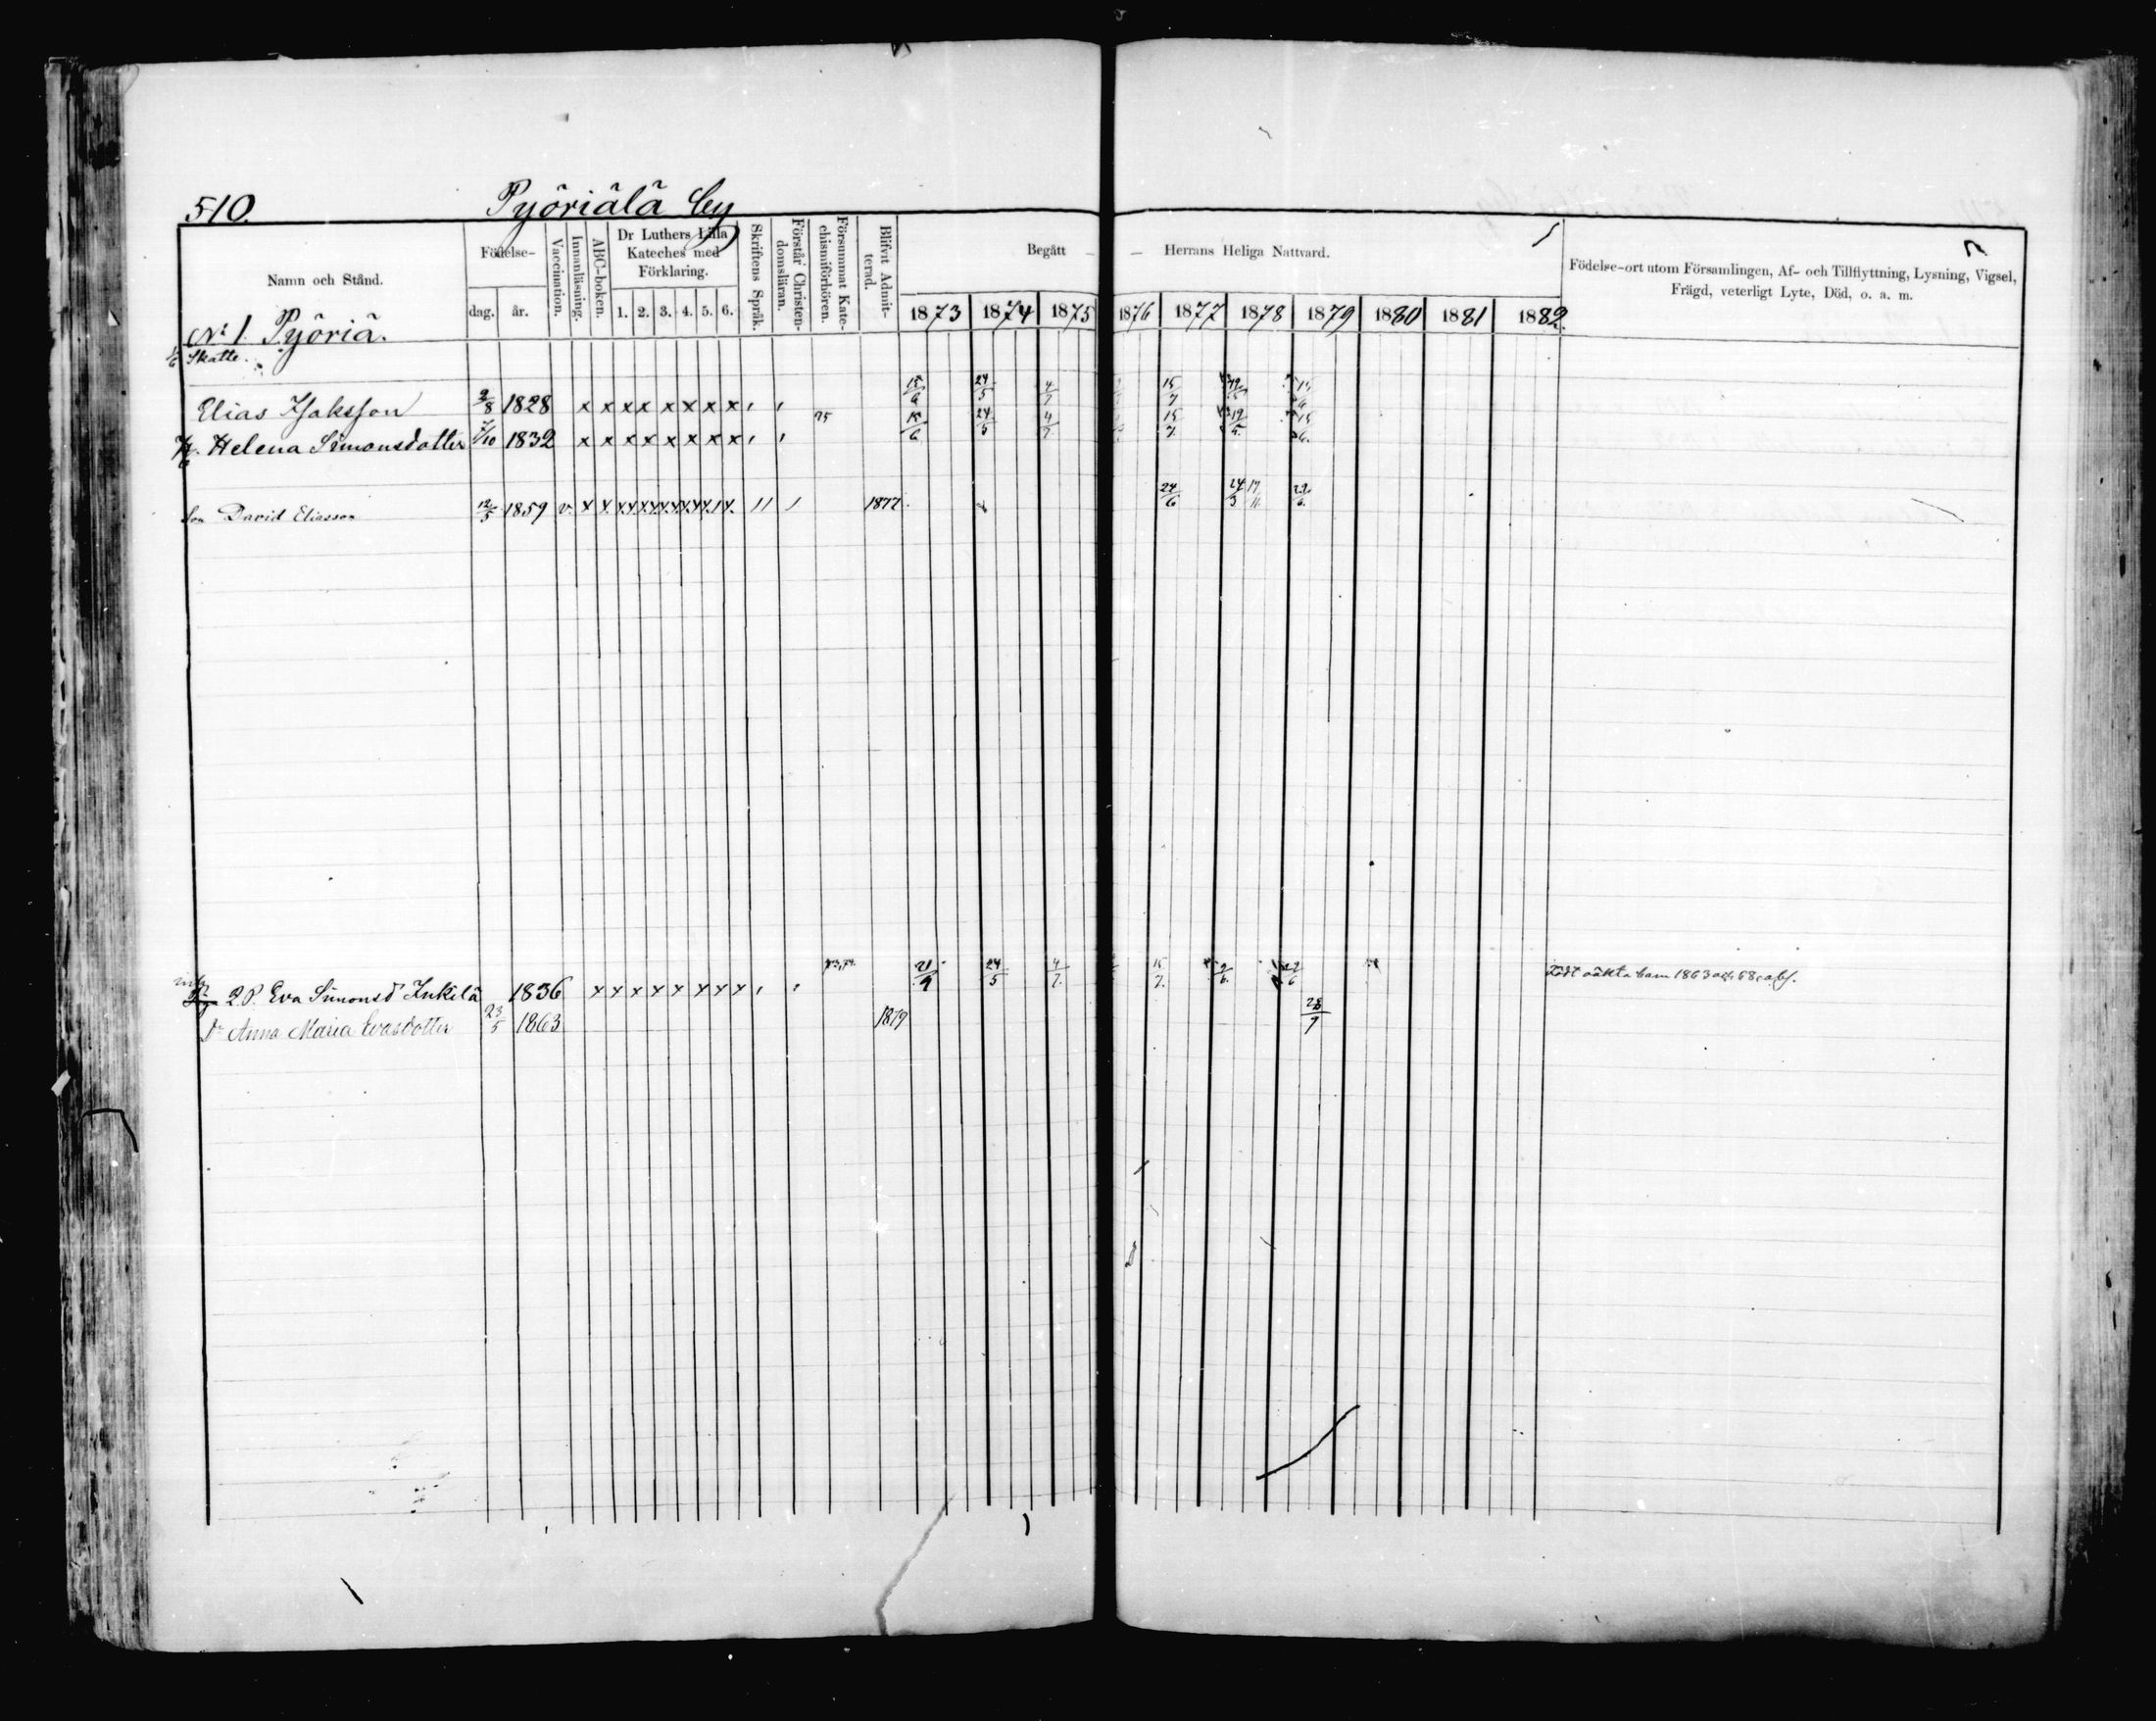 510. Pyöriälä by
Namn och Stånd.
Födelse-
dag. år.
Vaccination.
Innanläsning.
ABC-boken.
Dr Luthers Lilla
Kateches med
Förklaring.
1. 2. 3. 4. 5. 6.
Skriftens Språk.
Förstår Christen-
domsläran.
Försummat Kate-
chismiförhören.
Blifvit Admit-
terad.
Begått — — Herrans Heliga Nattvard.
1873 1874 1875 1876 1877 1878 1879 1880 1881 1882.
Födelse-ort utom Församlingen, Af- och Tillflyttning, Lysning, Vigsel,
Frägd, veterligt Lyte, Död, o. a. m.
No 1. Pyöriä.
Skatte.
Elias Isaksson 2/8 1828 x x x x x x x x 15/6 24/5 4/7 15/7
H. Helena Simonsdotter 1/10 1832 x x x x x x x x 75 15/6 24/5 4/7 15/7
Son David Eliasson 12/5 1859 v. 1877. 24/6 24/3 17/11 22/6
Eva Simonsd Inkilä 1836 x x x x x x x x 73,74 21/9 24/5 4/7 15/7 22/6 Födt oäkta barn 1863 och 68, abs.
Dr Anna Maria Evasdotter 23/5 1863 1879 28/9